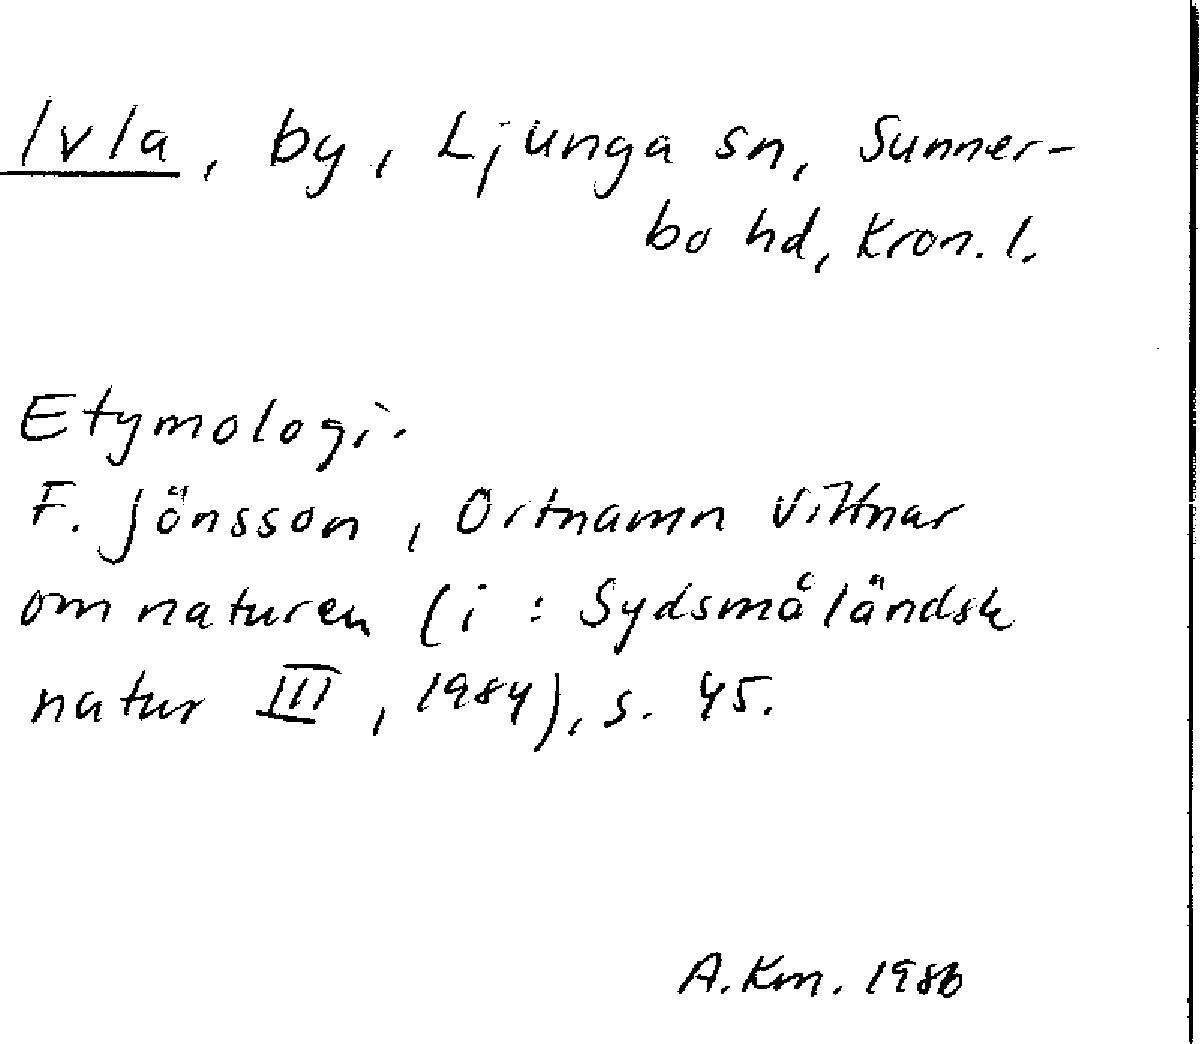 Ivla, by, Ljunga sn, Sunner-
bo hd, Kron. l.
Etymologi.
F. Jönsson, Ortnamn vittnar
om naturen (i: Sydsmåländsk
natur III, 1984), s. 45.
A.Km. 1986